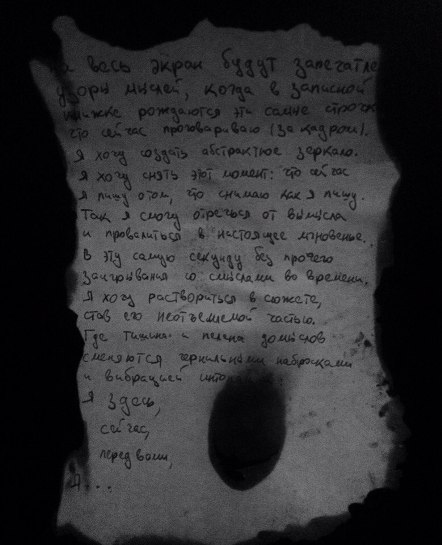 а весь экран будут запечатле
узоры мыслей, когда в записной
книжке рождаются эти самые строчк
что сейчас проговариваю (за кадром).
Я хочу создать абстрактное зеркало.
Я хочу снять этот момент: что сейчас
я пишу о том, что снимаю как я пишу.
Так я смогу отречься от вымысла
и провалиться в настоящее мгновенье.
В эту самую секунду без прочего
заигрывания со смыслами во времени.
Я хочу раствориться в сюжете,
став его неотъемлемой частью.
Где тишина и пелена домыслов
сменяются чернильными набросками
и вибрацией инто
Я здесь,
сейчас,
перед вами,
Я...